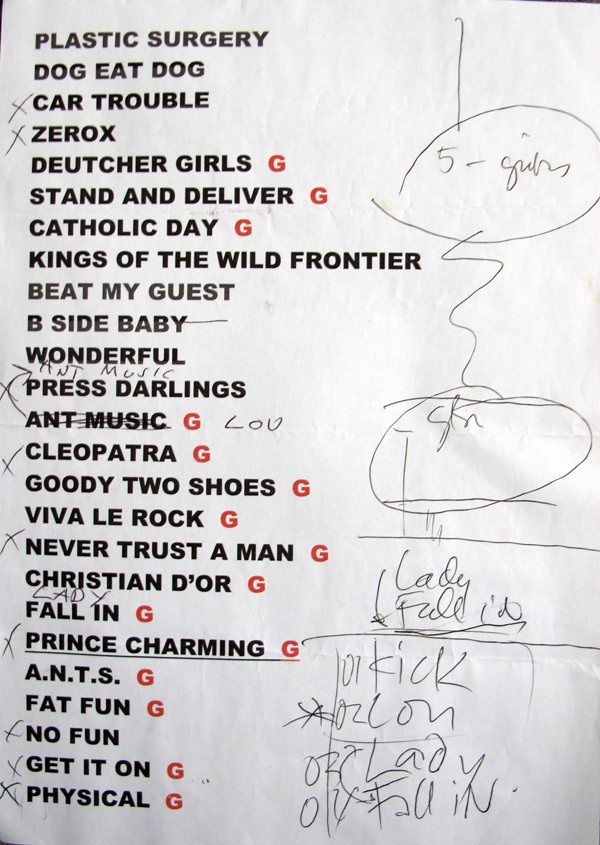 PLASTIC SURGERY
DOG EAT DOG
X CAR TROUBLE
X ZEROX
DEUTCHER GIRLS G
STAND AND DELIVER G
CATHOLIC DAY G
KINGS OF THE WILD FRONTIER
BEAT MY GUEST
B SIDE BABY
WONDERFUL
ANT MUSIC
X PRESS DARLINGS
ANT MUSIC G LOU
X CLEOPATRA G
GOODY TWO SHOES G
VIVA LE ROCK G
X NEVER TRUST A MAN G
CHRISTIAN D'OR G
LADY
FALL IN G
X PRINCE CHARMING G
A.N.T.S. G
FAT FUN G
X NO FUN
X GET IT ON G
X PHYSICAL G
5 -
Lady
Fall in
KICK
Lady
Fall iN.